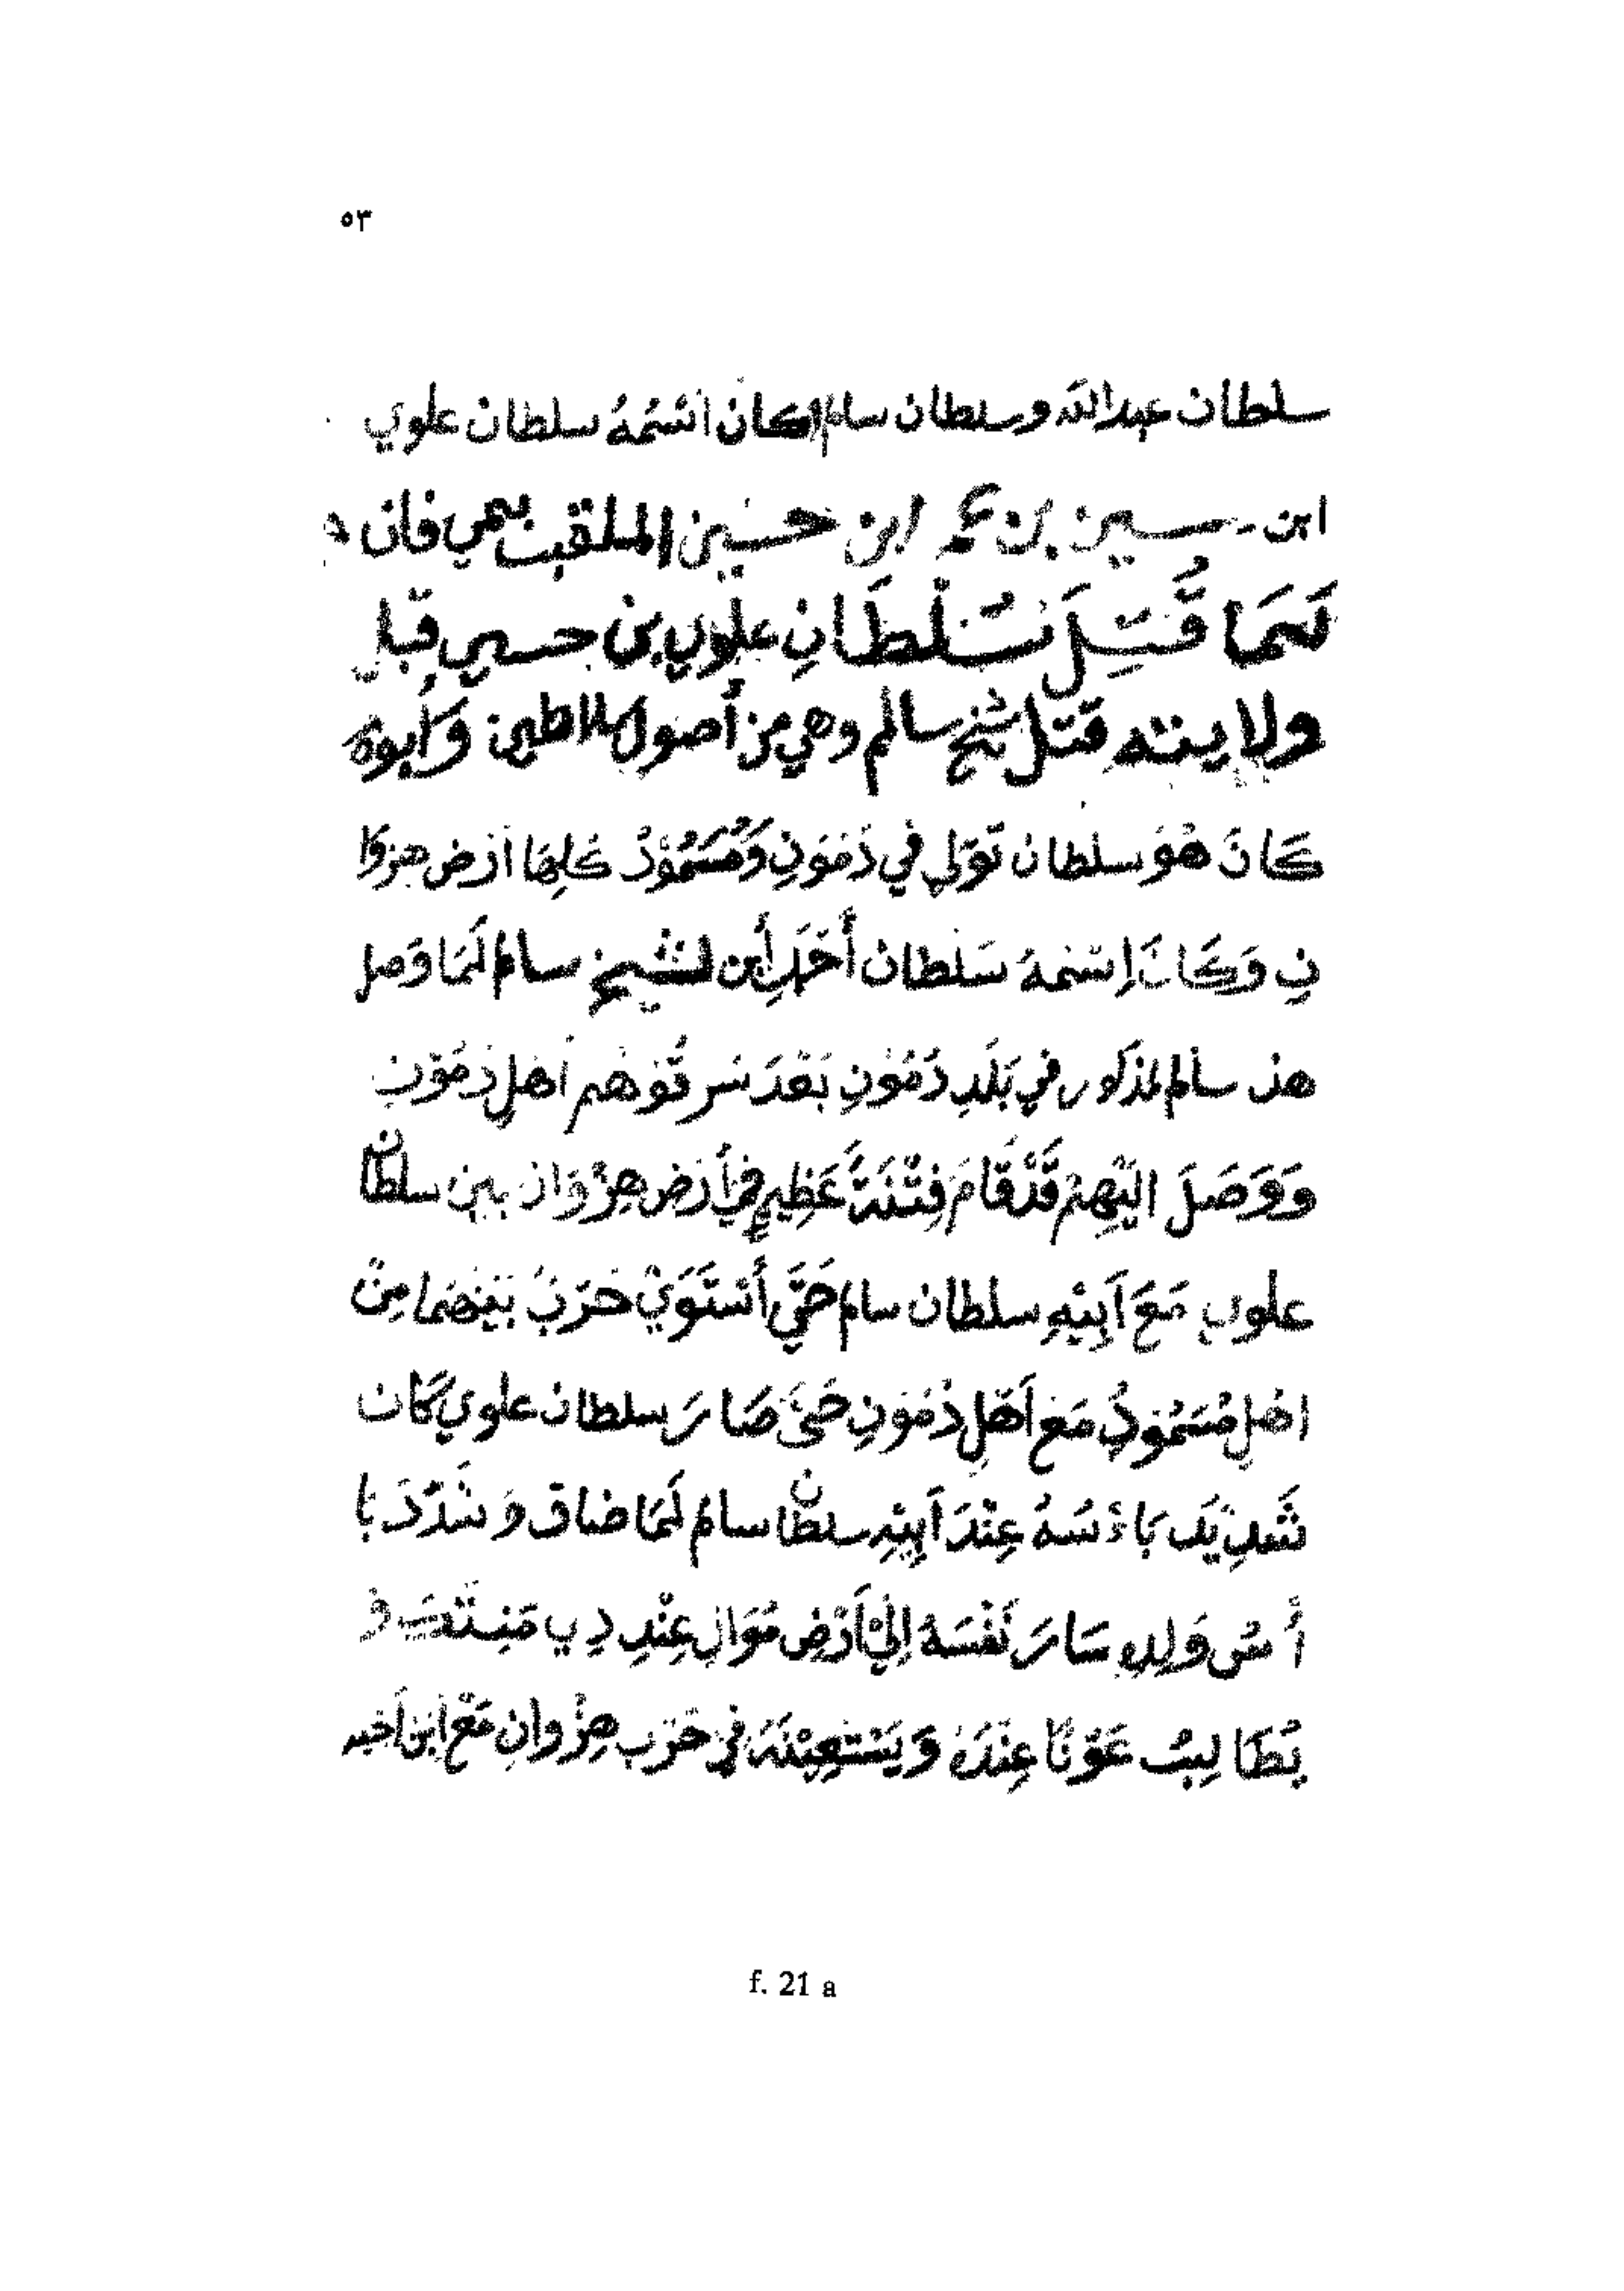 ٥٣
سلطان عبدالله وسلطان سالم كان اسْمُهُ سلطان علوي
ابن حسين بن ابن حسين الملقب فان
لَمَا قُتِلَ سُلْطَانِ علوي بن حسين قبل
ولايته قتل شيخ سالم وهي من أصول سلاطين وَأبوهُ
كَانَ هُوَ سلطان تَوَلي في دَمُوَنِ وَمُسَمُوْدُ كُلِهَا أرْض هزوا
نِ وَكَانَ إسْمُهُ سَلْطان أحْمَد ابن لشيخ سالم لَمَا وَصل
هذ سالم لمذكور في بَلَدِ دُمُوْنِ بَعْدَ سرقُوْهُم أهل دَمُوْنِ
وَوَصَلَ الَيْهِمْ قَدْقَامَ فِتْنَةً عَظِيمٍ في أرْض هِزْوَان بين سلطان
علوي مَعَ أَبِيْهِ سلطان سالم حَتَّي أسْتَوَيْ حَرْبُ بَيْنَهُمَا مِنْ
اهْلِ مُسَمُوْدُ مَعَ أَهْلِ دُمُوْنِ حَتَّيَ صَارَ سلطان علوي كَان
شَدِيْدَ بَاءْسُهُ عِنْدَ أَبِيْهِ سلطان سالم لَمَا ضاق وَ شَدَّدَ با
أسُ وَلِدِهِ سَارَ نَفْسَهُ إِلَيْ أَرْضِ مُوَالِ عِنْدِ دِي
يُطَالِبُ عَوْنًا عِنْدَهُ وَيَسْتَعِيْنَهُ في حَرْبِ هِزْوانِ مَعَ ابن أخيه
f. 21 a